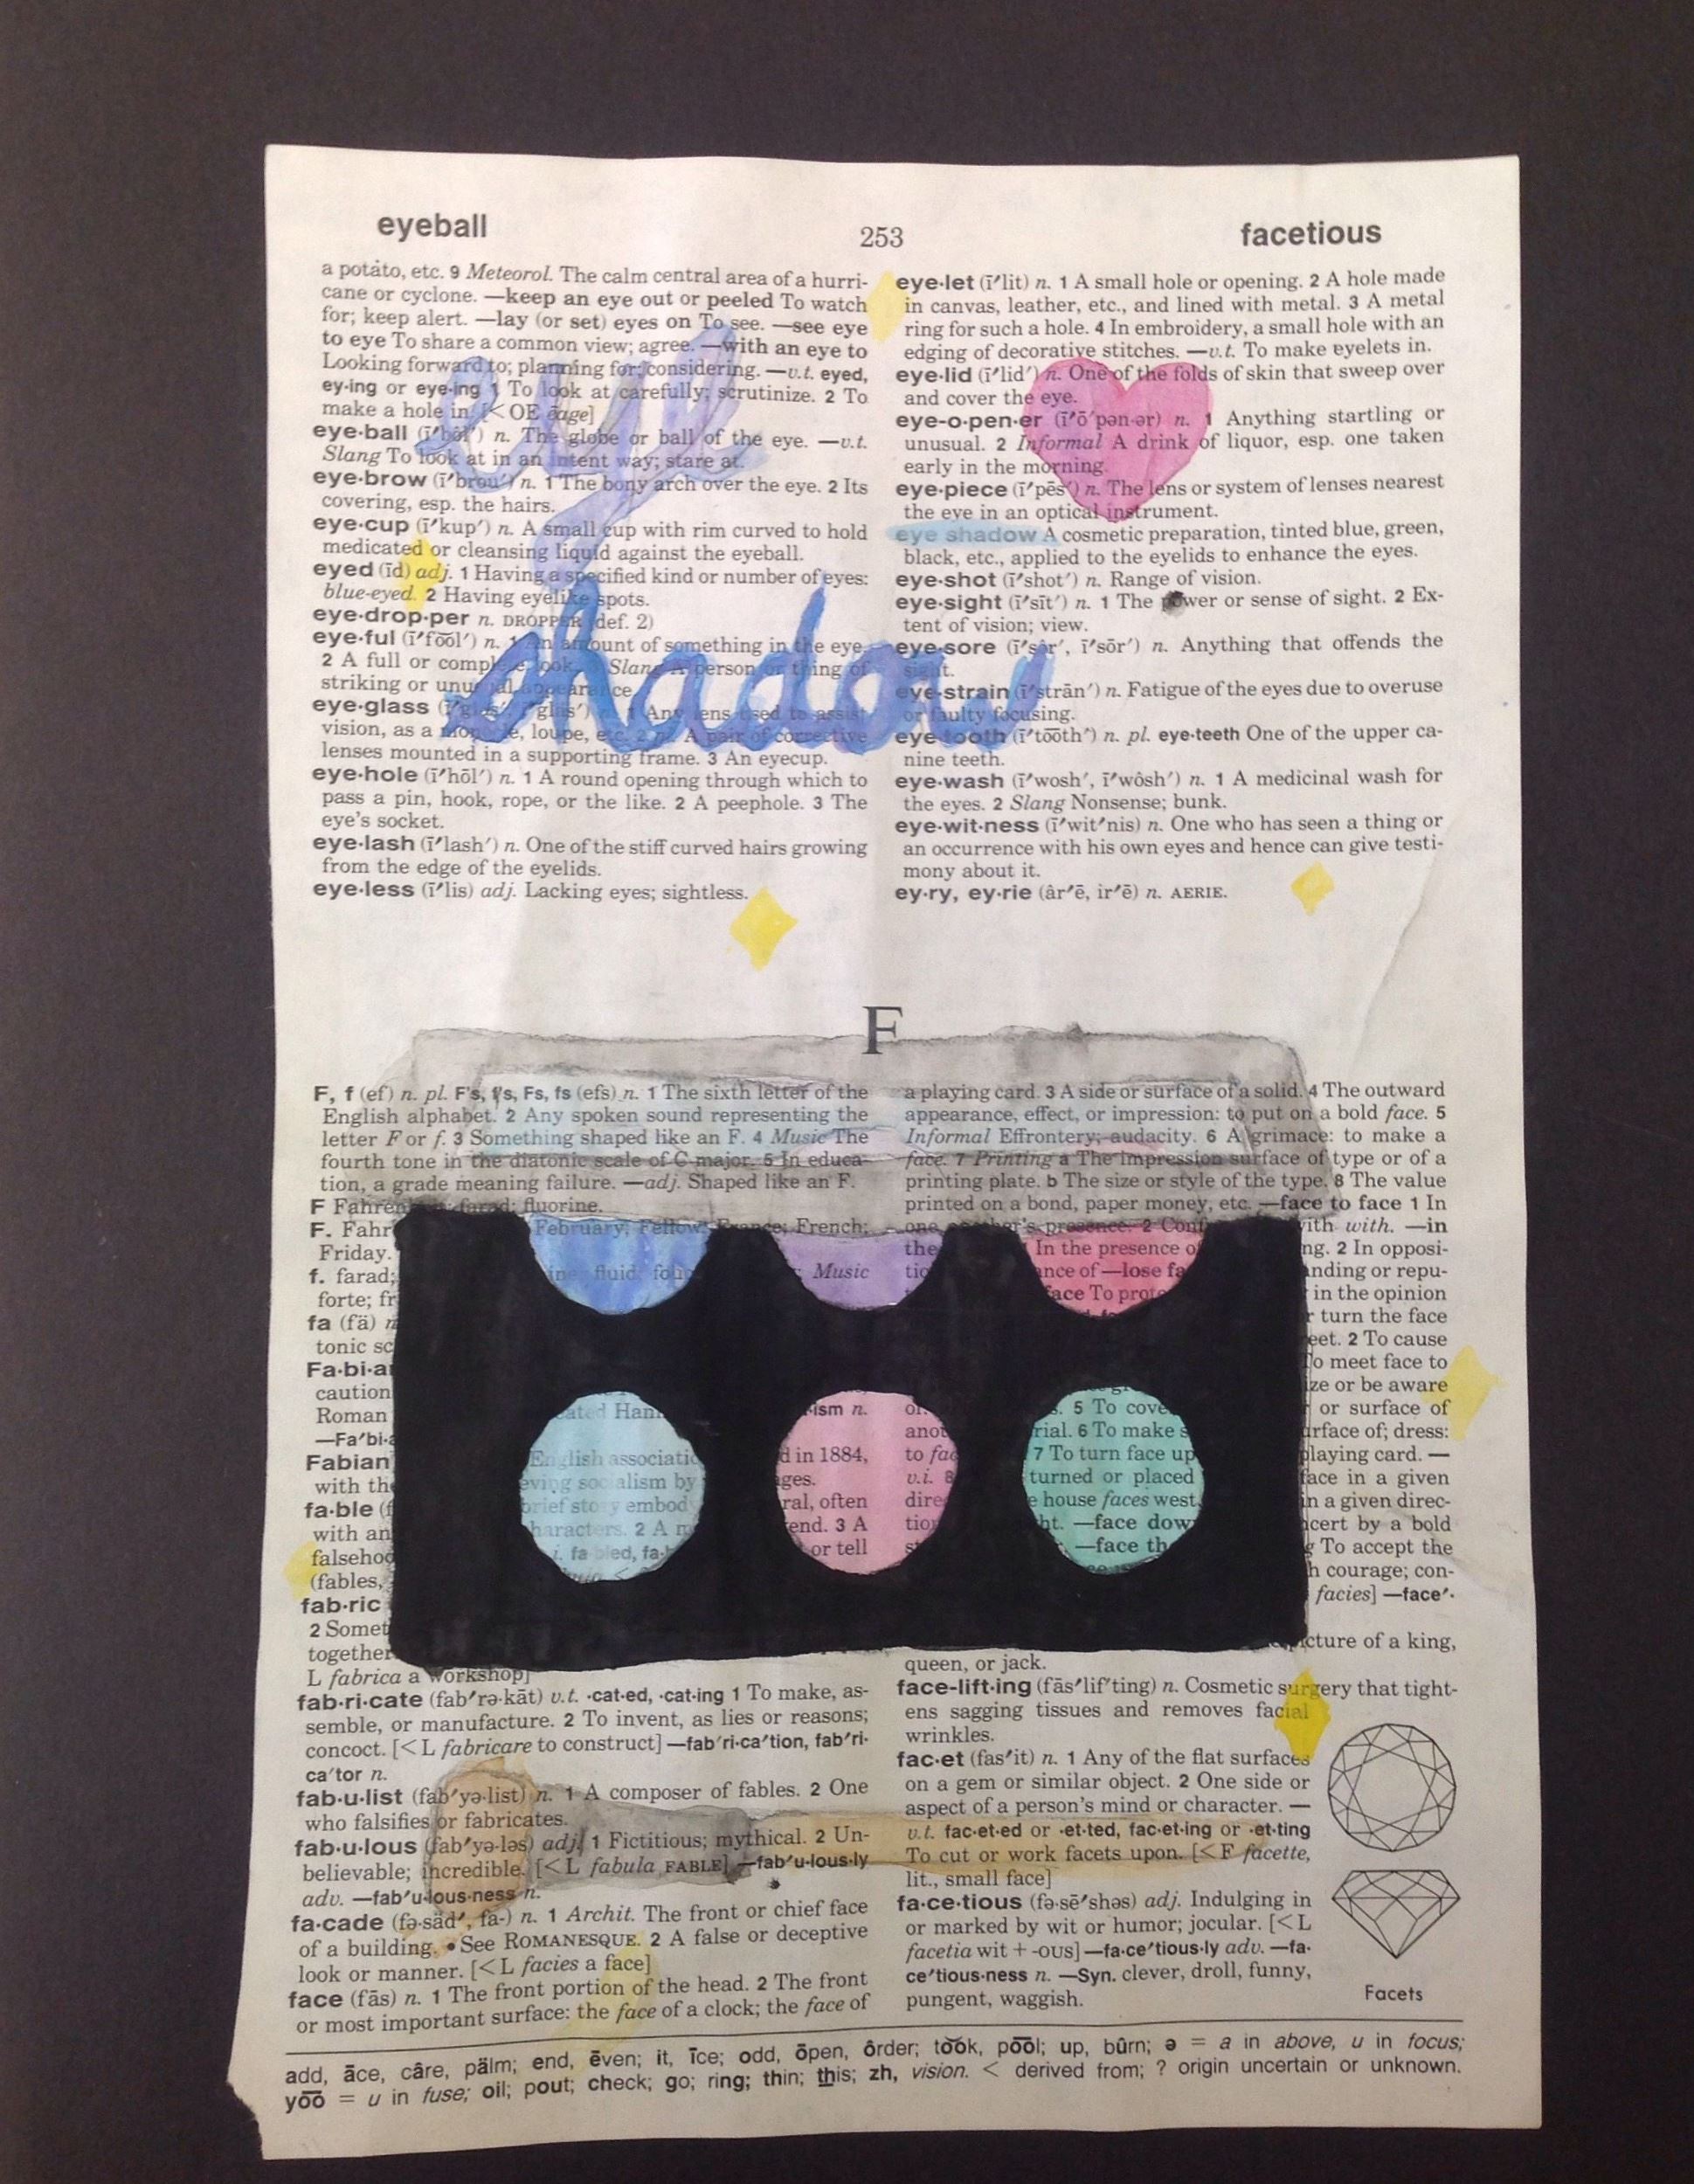 eyeball 253 facetious
a potato, etc. 9 Meteorol. The calm central area of a hurri-
cane or cyclone. —keep an eye out or peeled To watch
for; keep alert. —lay (or set) eyes on To see. —see eye
to eye To share a common view; agree. —with an eye to
Looking forward to; planning for; considering. —v.t. eyed,
ey·ing or eye·ing 1 To look at carefully; scrutinize. 2 To
make a hole in. [< OE ēage]
eye·ball (ī′bôl′) n. The globe or ball of the eye. —v.t.
Slang To look at in an intent way; stare at.
eye·brow (ī′brou′) n. 1 The bony arch over the eye. 2 Its
covering, esp. the hairs.
eye·cup (ī′kup′) n. A small cup with rim curved to hold
medicated or cleansing liquid against the eyeball.
eyed (īd) adj. 1 Having a specified kind or number of eyes:
blue-eyed. 2 Having eyelike spots.
eye·drop·per n. DROPPER (def. 2)
eye·ful (ī′fo͝ol′) n. 1 An amount of something in the eye.
2 A full or complete look. Slang A person or thing of
striking or unusual appearance.
eye·glass (ī′glas′, ī′gläs′) n. 1 Any lens used to assist
vision, as a monocle, loupe, etc. 2 pl. A pair of corrective
lenses mounted in a supporting frame. 3 An eyecup.
eye·hole (ī′hōl′) n. 1 A round opening through which to
pass a pin, hook, rope, or the like. 2 A peephole. 3 The
eye's socket.
eye·lash (ī′lash′) n. One of the stiff curved hairs growing
from the edge of the eyelids.
eye·less (ī′lis) adj. Lacking eyes; sightless.
eye
shadow
eye·let (ī′lit) n. 1 A small hole or opening. 2 A hole made
in canvas, leather, etc., and lined with metal. 3 A metal
ring for such a hole. 4 In embroidery, a small hole with an
edging of decorative stitches. —v.t. To make eyelets in.
eye·lid (ī′lid′) n. One of the folds of skin that sweep over
and cover the eye.
eye-o·pen·er (ī′ō′pən·ər) n. 1 Anything startling or
unusual. 2 Informal A drink of liquor, esp. one taken
early in the morning.
eye·piece (ī′pēs′) n. The lens or system of lenses nearest
the eye in an optical instrument.
eye shadow A cosmetic preparation, tinted blue, green,
black, etc., applied to the eyelids to enhance the eyes.
eye·shot (ī′shot′) n. Range of vision.
eye·sight (ī′sīt′) n. 1 The power or sense of sight. 2 Ex-
tent of vision; view.
eye·sore (ī′sôr′, ī′sōr′) n. Anything that offends the
sight.
eye·strain (ī′strān′) n. Fatigue of the eyes due to overuse
or faulty focusing.
eye·tooth (ī′to͞oth′) n. pl. eye·teeth One of the upper ca-
nine teeth.
eye·wash (ī′wosh′, ī′wôsh′) n. 1 A medicinal wash for
the eyes. 2 Slang Nonsense; bunk.
eye·wit·ness (ī′wit′nis) n. One who has seen a thing or
an occurrence with his own eyes and hence can give testi-
mony about it.
ey·ry, ey·rie (âr′ē, ir′ē) n. AERIE.
F
F, f (ef) n. pl. F's, f's, Fs, fs (efs) n. 1 The sixth letter of the
English alphabet. 2 Any spoken sound representing the
letter F or f. 3 Something shaped like an F. 4 Music The
fourth tone in the diatonic scale of C major. 5 In educa-
tion, a grade meaning failure. —adj. Shaped like an F.
F Fahrenheit; farad; fluorine.
F. Fahr February; Fellow; France; French;
Friday.
f. farad; fluid; Music
forte; fr
fa (fä) n
tonic sc
Fa·bi·a
caution
Roman
—Fa′bi·a
Fabian English associati d in 1884,
with the eving socialism by ges.
fa·ble (f brief story embod ral, often
with an haracters. 2 A end. 3 A
falsehoo fa·bled, fa· or tell
(fables,
fab·ric
2 Somet
together
L fabrica a workshop]
fab·ri·cate (fab′rə·kāt) v.t. ·cat·ed, ·cat·ing 1 To make, as-
semble, or manufacture. 2 To invent, as lies or reasons;
concoct. [< L fabricare to construct] —fab′ri·ca′tion, fab′ri·
ca′tor n.
fab·u·list (fab′yə·list) n. 1 A composer of fables. 2 One
who falsifies or fabricates.
fab·u·lous (fab′yə·ləs) adj. 1 Fictitious; mythical. 2 Un-
believable; incredible. [< L fabula FABLE] —fab′u·lous·ly
adv. —fab′u·lous·ness n.
fa·cade (fə·säd′, fa-) n. 1 Archit. The front or chief face
of a building. • See ROMANESQUE. 2 A false or deceptive
look or manner. [< L facies a face]
face (fās) n. 1 The front portion of the head. 2 The front
or most important surface: the face of a clock; the face of
a playing card. 3 A side or surface of a solid. 4 The outward
appearance, effect, or impression: to put on a bold face. 5
Informal Effrontery; audacity. 6 A grimace: to make a
face. 7 Printing a The impression surface of type or of a
printing plate. b The size or style of the type. 8 The value
printed on a bond, paper money, etc. —face to face 1 In
one another's presence. 2 Conf with with. —in
the In the presence of ng. 2 In opposi-
tio nce of —lose fa nding or repu-
ace To prote in the opinion
r turn the face
eet. 2 To cause
To meet face to
ize or be aware
or. 5 To cove or surface of
ano rial. 6 To make s urface of; dress:
to fac 7 To turn face up playing card. —
v.i. 8 turned or placed face in a given
dire e house faces west. in a given direc-
tio ht. —face dow ncert by a bold
—face th g To accept the
h courage; con-
facies] —face′·
picture of a king,
queen, or jack.
face-lift·ing (fās′lif′ting) n. Cosmetic surgery that tight-
ens sagging tissues and removes facial
wrinkles.
fac·et (fas′it) n. 1 Any of the flat surfaces
on a gem or similar object. 2 One side or
aspect of a person's mind or character. —
v.t. fac·et·ed or ·et·ted, fac·et·ing or ·et·ting
To cut or work facets upon. [< F facette,
lit., small face]
fa·ce·tious (fə·sē′shəs) adj. Indulging in
or marked by wit or humor; jocular. [< L
facetia wit + -OUS] —fa·ce′tious·ly adv. —fa·
ce′tious·ness n. —Syn. clever, droll, funny,
pungent, waggish.
Facets
add, āce, câre, pälm; end, ēven; it, īce; odd, ōpen, ôrder; to͝ok, po͞ol; up, bûrn; ə = a in above, u in focus;
yo͞o = u in fuse; oil; pout; check; go; ring; thin; this; zh, vision. < derived from; ? origin uncertain or unknown.